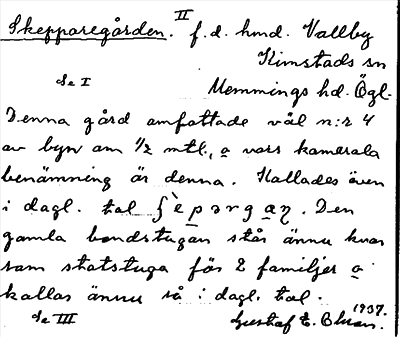 II
Skepparegården. f.d. hmd. Vallby
Kimstads sn
Se I Memmings hd. Ögl.
Denna gård omfattade väl n:r 4
av byn om 1/2 mtl., o vars kamerala
benämning är denna. Kallades även
i dagl. tal . Den
gamla bondstugan står ännu kvar
som statstuga för 2 familjer o
kallas ännu så i dagl. tal.
1937.
Se III Gustaf E.